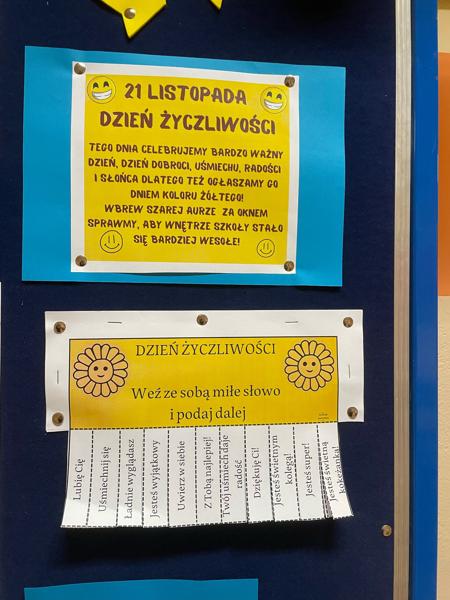 21 LISTOPADA
DZIEŃ ŻYCZLIWOŚCI
TEGO DNIA CELEBRUJEMY BARDZO WAŻNY
DZIEŃ, DZIEŃ DOBROCI, UŚMIECHU, RADOŚCI
I SŁOŃCA DLATEGO TEŻ OGŁASZAMY GO
DNIEM KOLORU ŻÓŁTEGO!
WBREW SZAREJ AURZE ZA OKNEM
SPRAWMY, ABY WNĘTRZE SZKOŁY STAŁO
SIĘ BARDZIEJ WESOŁE!
DZIEŃ ŻYCZLIWOŚCI
Weź ze sobą miłe słowo
i podaj dalej
Lubię Cię
Uśmiechnij się
Ładnie wyglądasz
Jesteś wyjątkowy
Uwierz w siebie
Z Tobą najlepiej!
Twój uśmiech daje
radość
Dziękuję Ci!
Jesteś świetnym
kolegą!
Jesteś super!
Jesteś świetną
koleżanką!